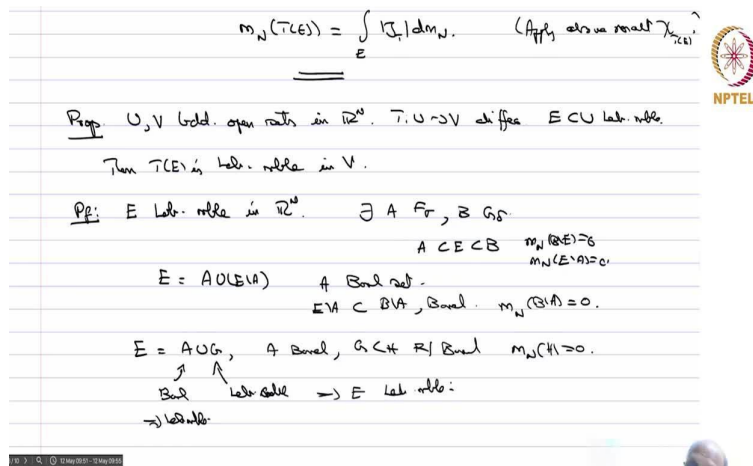 m_N(T(E)) = ∫_E |J_T| dm_N. (Apply above result χ_{T(E)})
NPTEL
Prop. U, V bdd. open sets in ℝ^N. T: U → V diffeo E ⊂ U Leb. mble.
Then T(E) is Leb. mble in V.
Pf: E Leb. mble in ℝ^N. ∃ A F_σ, B G_δ.
A ⊂ E ⊂ B m_N(B\E)=0
m_N(E\A)=0.
E = A∪(E\A) A Borel set.
E\A ⊂ B\A, Borel. m_N(B\A)=0.
E = A∪G, A Borel, G ⊂ H Borel m_N(H)=0.
Borel Leb. mble ⇒ E Leb. mble.
⇒ Leb mble.
12 May 09:51 - 12 May 09:55